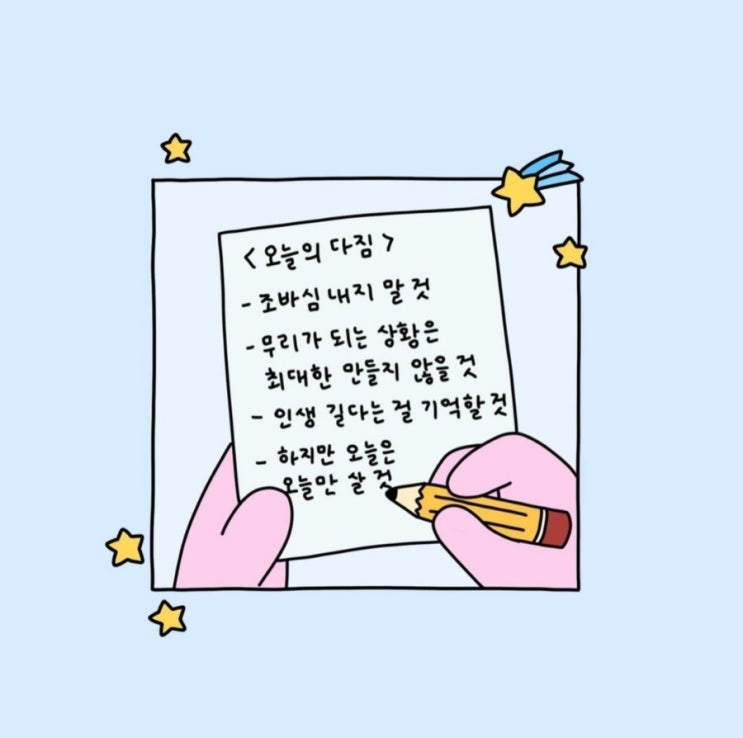 < 오늘의 다짐 >
- 조바심 내지 말 것
- 무리가 되는 상황은
최대한 만들지 않을 것
- 인생 길다는 걸 기억할 것
- 하지만 오늘은
오늘만 살 것